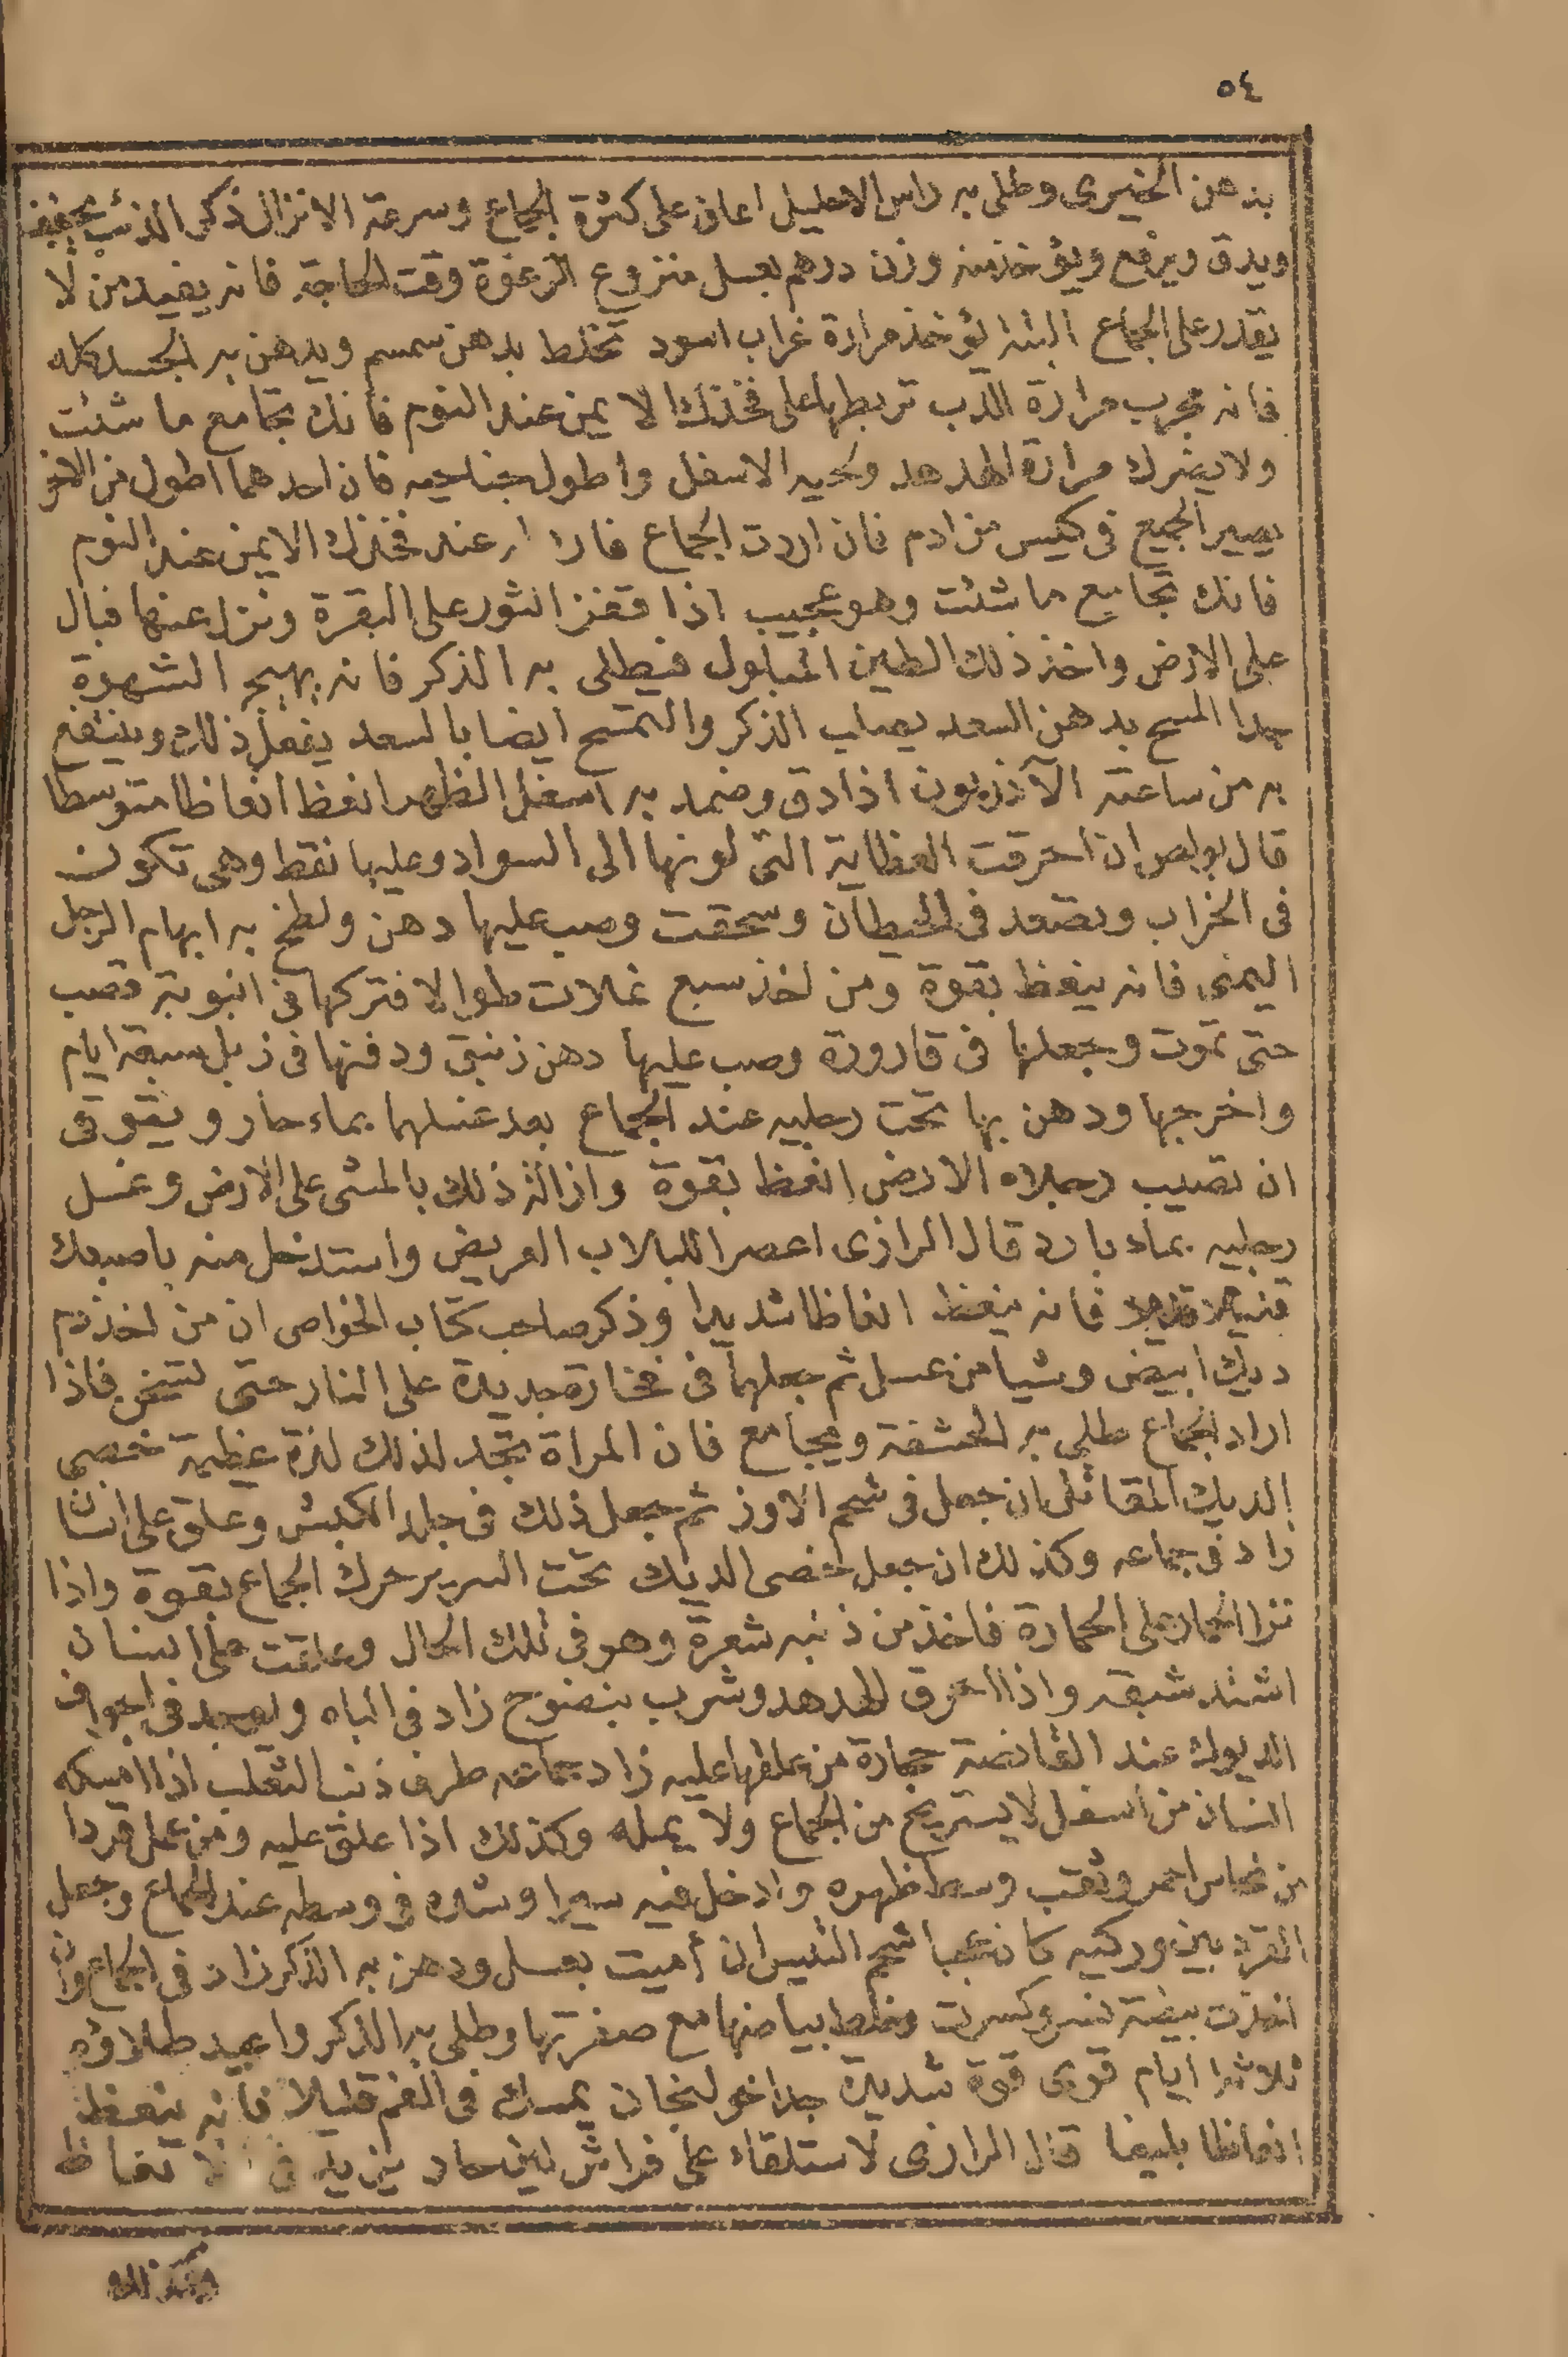 ٥٤
بدهن الخيرى وطلى به راس الاحليل اعان على كثرة الجماع وسرعة الانزال ذكر الذئب يجفف
ويدق ويرفع ويؤخذ منه وزن درهم بعسل منزوع الرغوة وقت الحاجة فانه يفيد من لا
يقدر على الجماع البتة يؤخذ مرارة غراب اسود تخلط بدهن سمسم ويدهن به الجسد كله
فانه مجرب مرارة الدب تربطها على فخذك الايمن عند النوم فانك تجامع ما شئت
ولا يضرك مرارة الهدهد ولحيه الاسفل واطول جناحيه فان احدهما اطول من الاخر
يصير الجميع فى كيس من ادم فان اردت الجماع عند فخذك الايمن عند النوم
فانك تجامع ما شئت وهو عجيب اذا قفز الثور على البقرة ونزل عنها فبال
على الارض واخذ ذلك الطين المبلول فيطلى به الذكر فانه يهيج الشهوة
جدا المسح بدهن السعد يصلب الذكر والتمسح ايضا بالسعد يفعل ذلك وينتفع
به من ساعته الآذريون اذا دق وضمد به اسفل الظهر انعظ انعاظا متوسطا
قال بولص ان احرقت العظاية التى لونها الى السواد وعليها نقط وهى تكون
فى الخراب وتصعد فى الحيطان وسحقت وصب عليها دهن ولطخ به ابهام الرجل
اليمنى فانه ينعظ بقوة ومن اخذ سبع نملات طوالا فتركها فى انبوبة قصب
حتى تموت وجعلها فى قارورة وصب عليها دهن زنبق ودفنها فى زبل سبعة ايام
واخرجها ودهن بها تحت رجليه عند الجماع بعد غسلهما بماء حار ويتوقى
ان تصيب رجلاه الارض انعظ بقوة وازالة ذلك بالمشى على الارض وغسل
رجليه بماء بارد قال الرازى اعصر اللبلاب العريض واستدخل منه باصبعك
قليلا قليلا فانه ينعظ انعاظا شديدا وذكر صاحب كتاب الخواص ان من اخذ دم
ديك ابيض وشيا من عسل ثم جعلهما فى فخارة جديدة على النار حتى تسخن فاذا
اراد الجماع طلى به الحشفة ويجامع فان المراة تجد لذلك لذة عظيمة خصى
الديك المقاتل ان جعل فى شحم الاوز ثم جعل ذلك فى جلد الكبش وعلق على انسان
زاد فى جماعه وكذلك ان جعل خصى الديك تحت السرير حرك الجماع بقوة واذا
نزا الحمار على الحمارة فاخذ من ذنبه شعرة وهو فى تلك الحال وعلقت على انسان
اشتد شبقه واذا احرق الهدهد وشرب بنضوج زاد فى الباه ويوجد فى اجواف
الديوك عند القانصة حجارة من علقها عليه زاد جماعه طرف ذنب الثعلب اذا امسكه
انسان من اسفل لا يستريح من الجماع ولا يمله وكذلك اذا علق عليه ومن عمل قردا
من نحاس احمر وثقب وسط ظهره وادخل فيه سيرا وشده فى وسطه عند الجماع وجعل
القرد بين وركيه كان عجبا شحم التيس ان أميت بعسل ودهن به الذكر زاد فى الجماع وان
اخذت بيضة نسر وكسرت وخلط بياضها مع صفرتها وطلى به الذكر واعيد طلاؤه
ثلاثة ايام قوى قوة شديدة جدا خولنجان يمسك فى الفم قليلا فانه ينعظ
انعاظا بليغا قال الرازى الاستلقاء على فراش لين حار يزيد فى الانعاظ